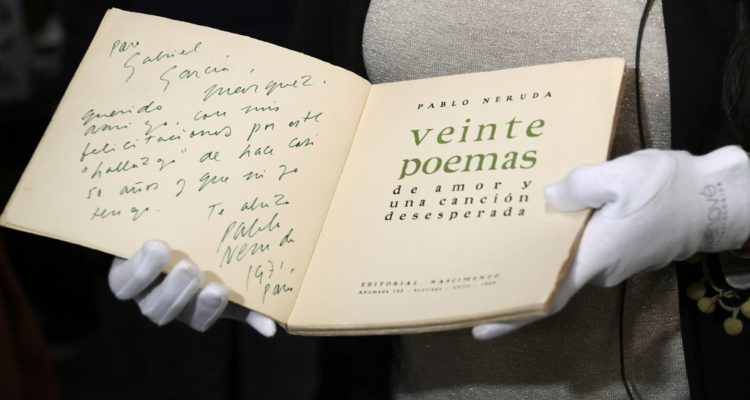 para
Gabriel
García
Marquez.
querido
amigo, con mis
felicitaciones por este
"hallazgo" de hace casi
50 años y que ni yo
tengo.
Te abraza
Pablo
Neruda
1971
Paris
PABLO NERUDA
veinte
poemas
de amor y
una canción
desesperada
EDITORIAL NASCIMENTO